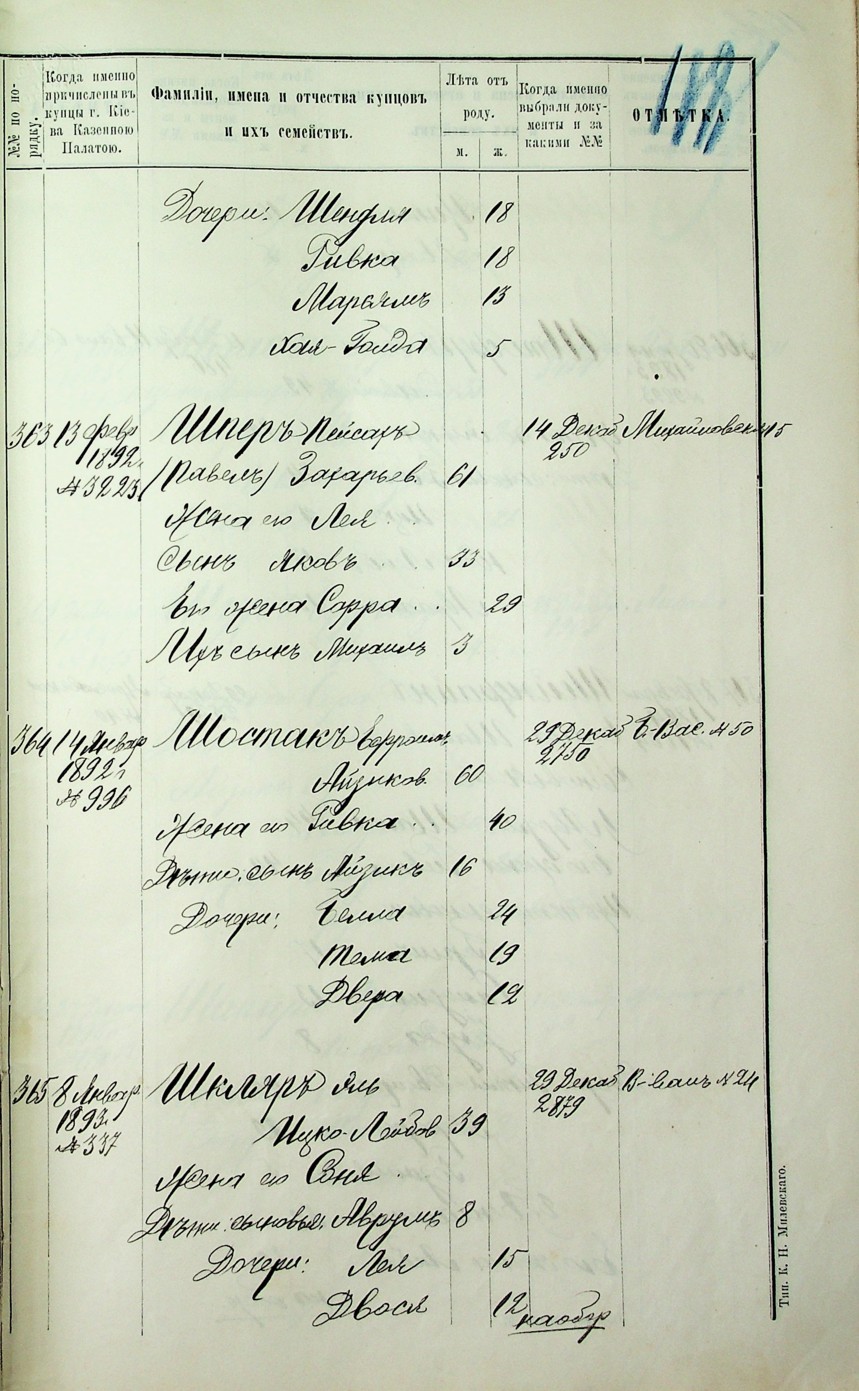 №№ по по-
рядку.
Когда именно
причислены въ
купцы г. Кіе-
ва Казенною
Палатою.
Фамиліи, имена и отчества купцовъ
и ихъ семействъ.
Лѣта отъ
роду.
м. ж.
Когда именно
выбрали доку-
менты и за
какими №№
ОТМѢТКА.
Дочери: Шендля 18
Ривка 18
Марьямъ 13
Хая-Голда 5
363 13 февр Шперъ Пейсахъ 14 Декаб Михайловская 15
1892 250
№ 3223 (Павелъ) Захарьев. 61
Жена его Лея
Сынъ Яковъ 33
Его жена Сорра 29
Ихъ сынъ Михаилъ 3
364 14 Январ Шостакъ 29 Декаб Б.-Вас. № 50
1892 г 2750
Айзиков. 60
№ 996
Жена его Ривка 40
Дѣти: сынъ Айзикъ 16
Дочери: Белла 24
Тема 19
Двера 12
365 8 Январ Шкляръ Эль 29 Декаб № 24
1893 2879
Ицко-Лейбов 39
№ 337
Жена его Соня
Дѣти: сыновья: Аврумъ 8
Дочери: Лея 15
Двося 12
наобор
Тип. К. Н. Милевскаго.